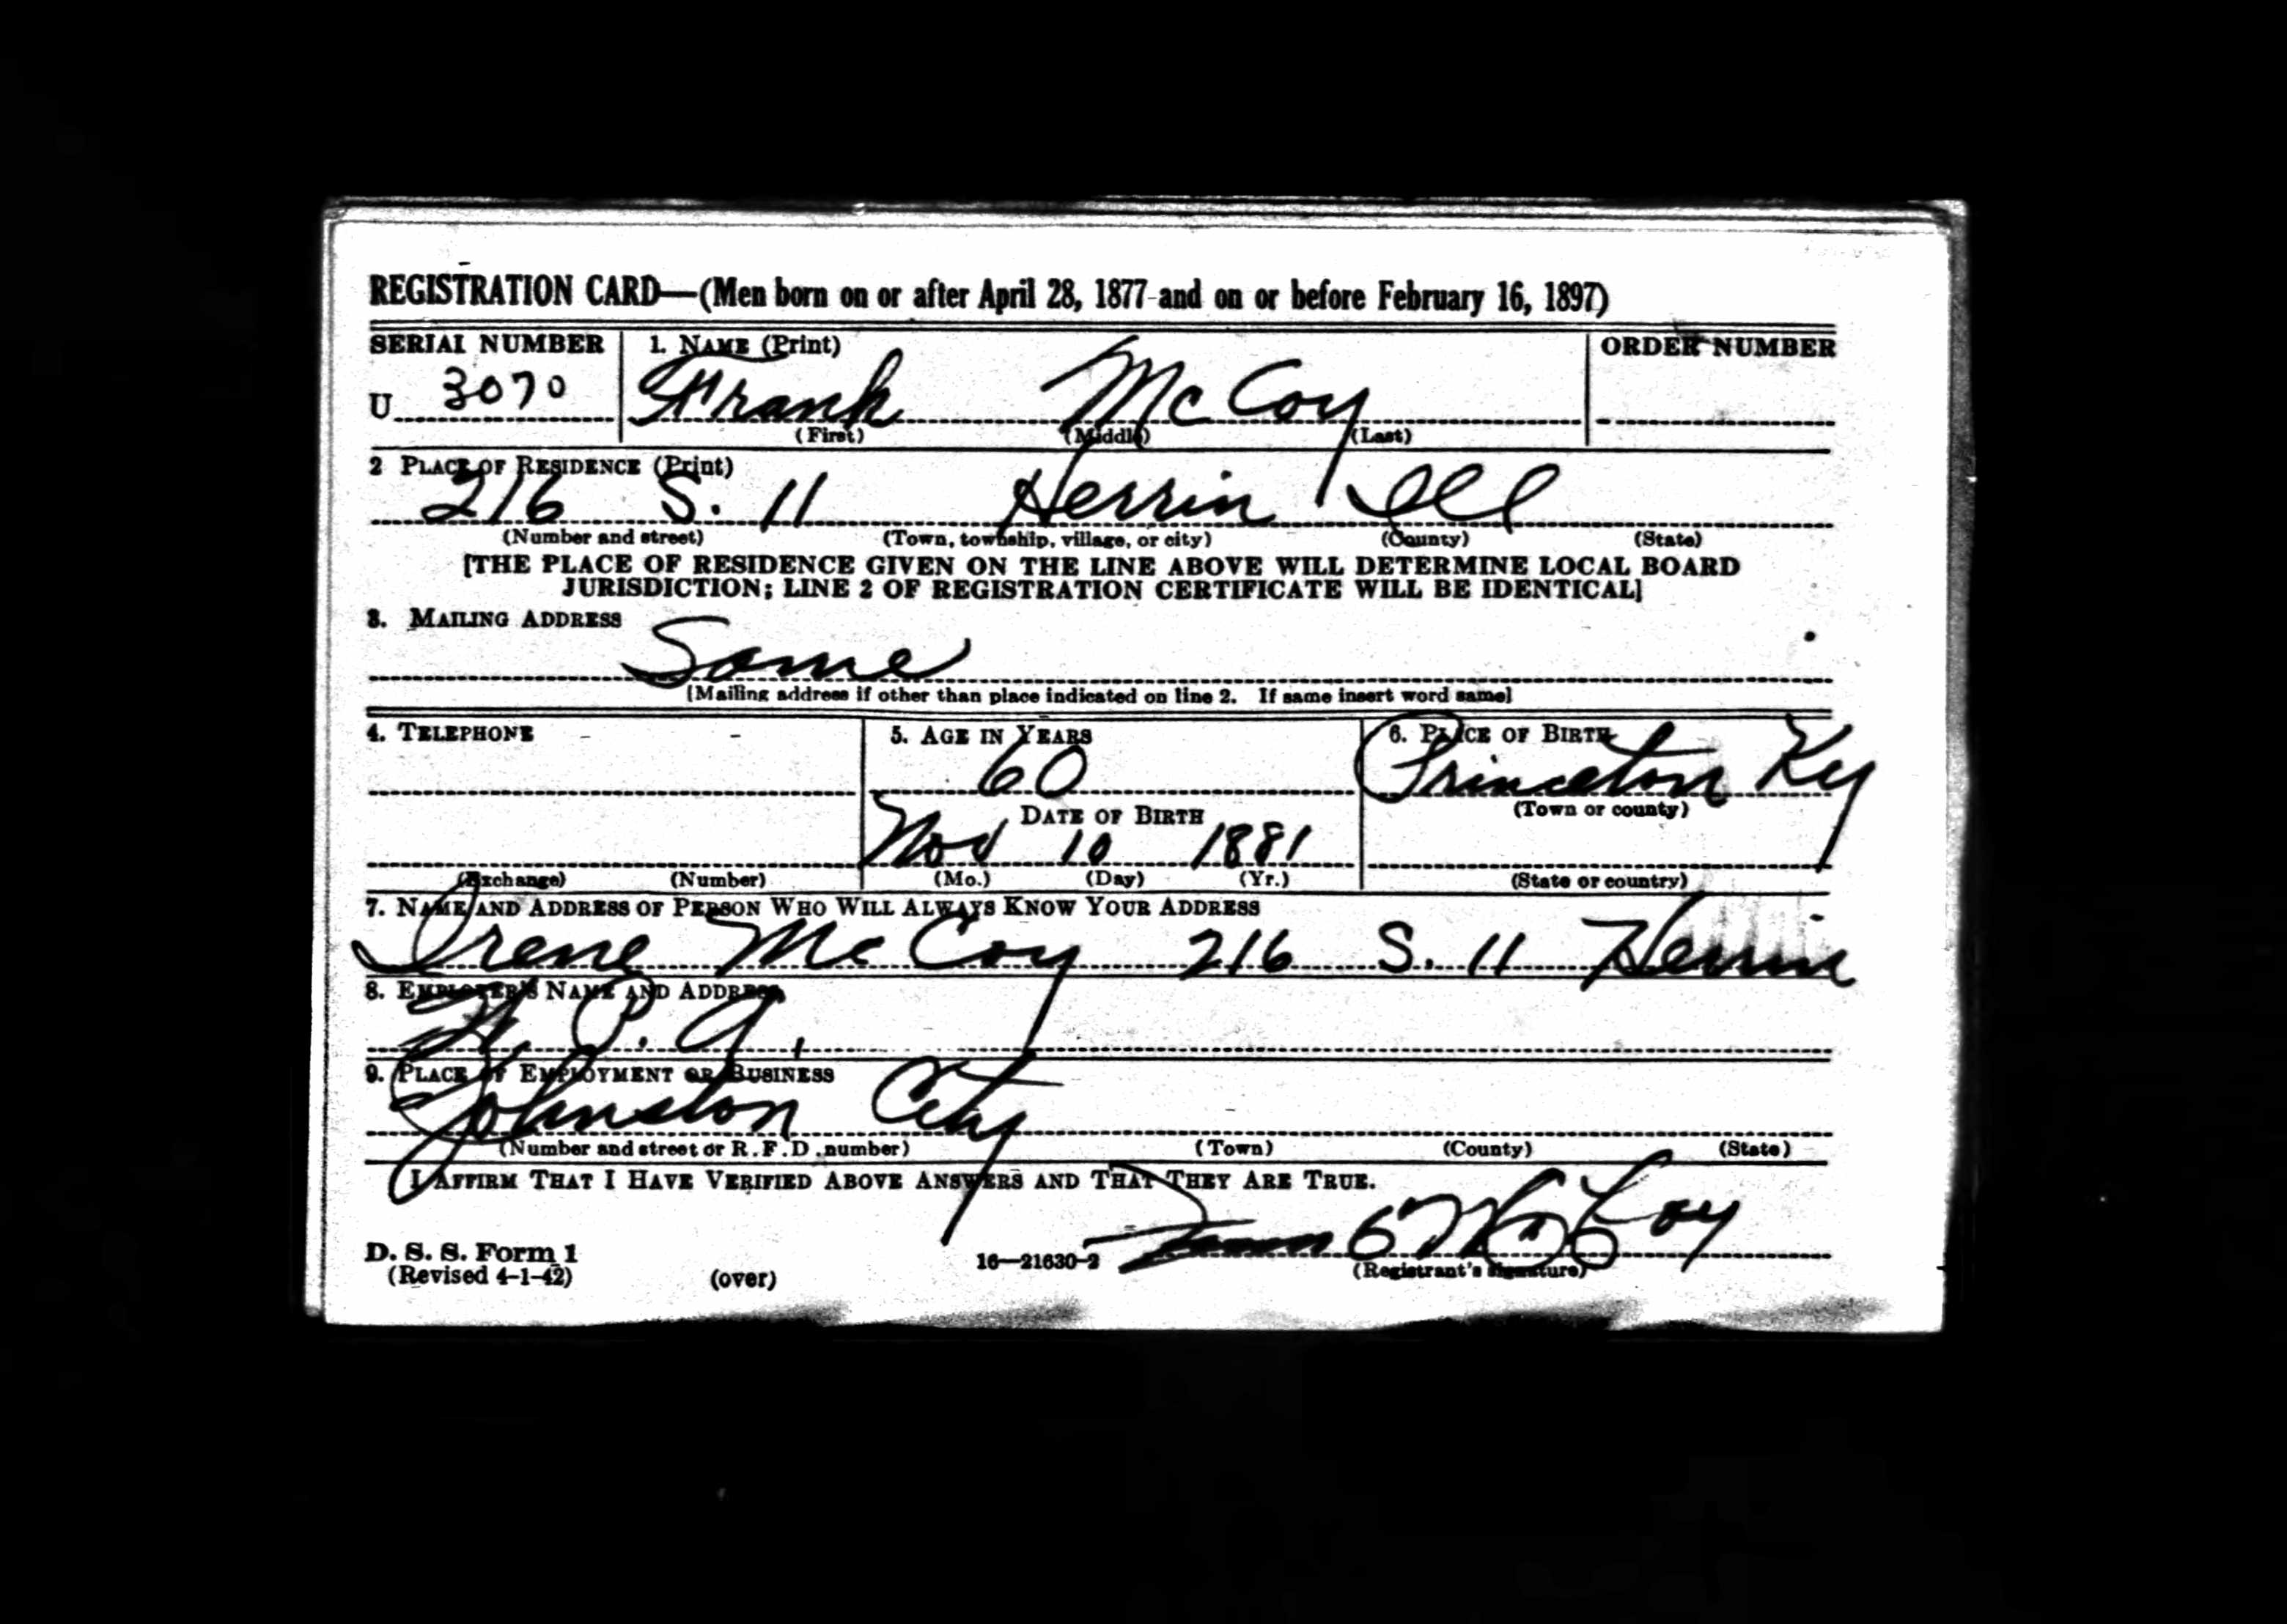 REGISTRATION CARD—(Men born on or after April 28, 1877 and on or before February 16, 1897)
SERIAL NUMBER 1. NAME (Print) ORDER NUMBER
U 3070 Frank McCoy
(First) (Middle) (Last)
2 PLACE OF RESIDENCE (Print)
216 S. 11 Herrin Ill
(Number and street) (Town, township, village, or city) (County) (State)
[THE PLACE OF RESIDENCE GIVEN ON THE LINE ABOVE WILL DETERMINE LOCAL BOARD
JURISDICTION; LINE 2 OF REGISTRATION CERTIFICATE WILL BE IDENTICAL]
3. MAILING ADDRESS
Same
[Mailing address if other than place indicated on line 2. If same insert word same]
4. TELEPHONE 5. AGE IN YEARS 6. PLACE OF BIRTH
60 Princeton Ky
DATE OF BIRTH (Town or county)
Nov 10 1881
(Exchange) (Number) (Mo.) (Day) (Yr.) (State or country)
7. NAME AND ADDRESS OF PERSON WHO WILL ALWAYS KNOW YOUR ADDRESS
Irene McCoy 216 S. 11 Herrin
8. EMPLOYER'S NAME AND ADDRESS
W. P. A.
9. PLACE OF EMPLOYMENT OR BUSINESS
Johnston City
(Number and street or R.F.D. number) (Town) (County) (State)
I AFFIRM THAT I HAVE VERIFIED ABOVE ANSWERS AND THAT THEY ARE TRUE.
McCoy
D. S. S. Form 1 16—21630-2 (Registrant's signature)
(Revised 4-1-42) (over)